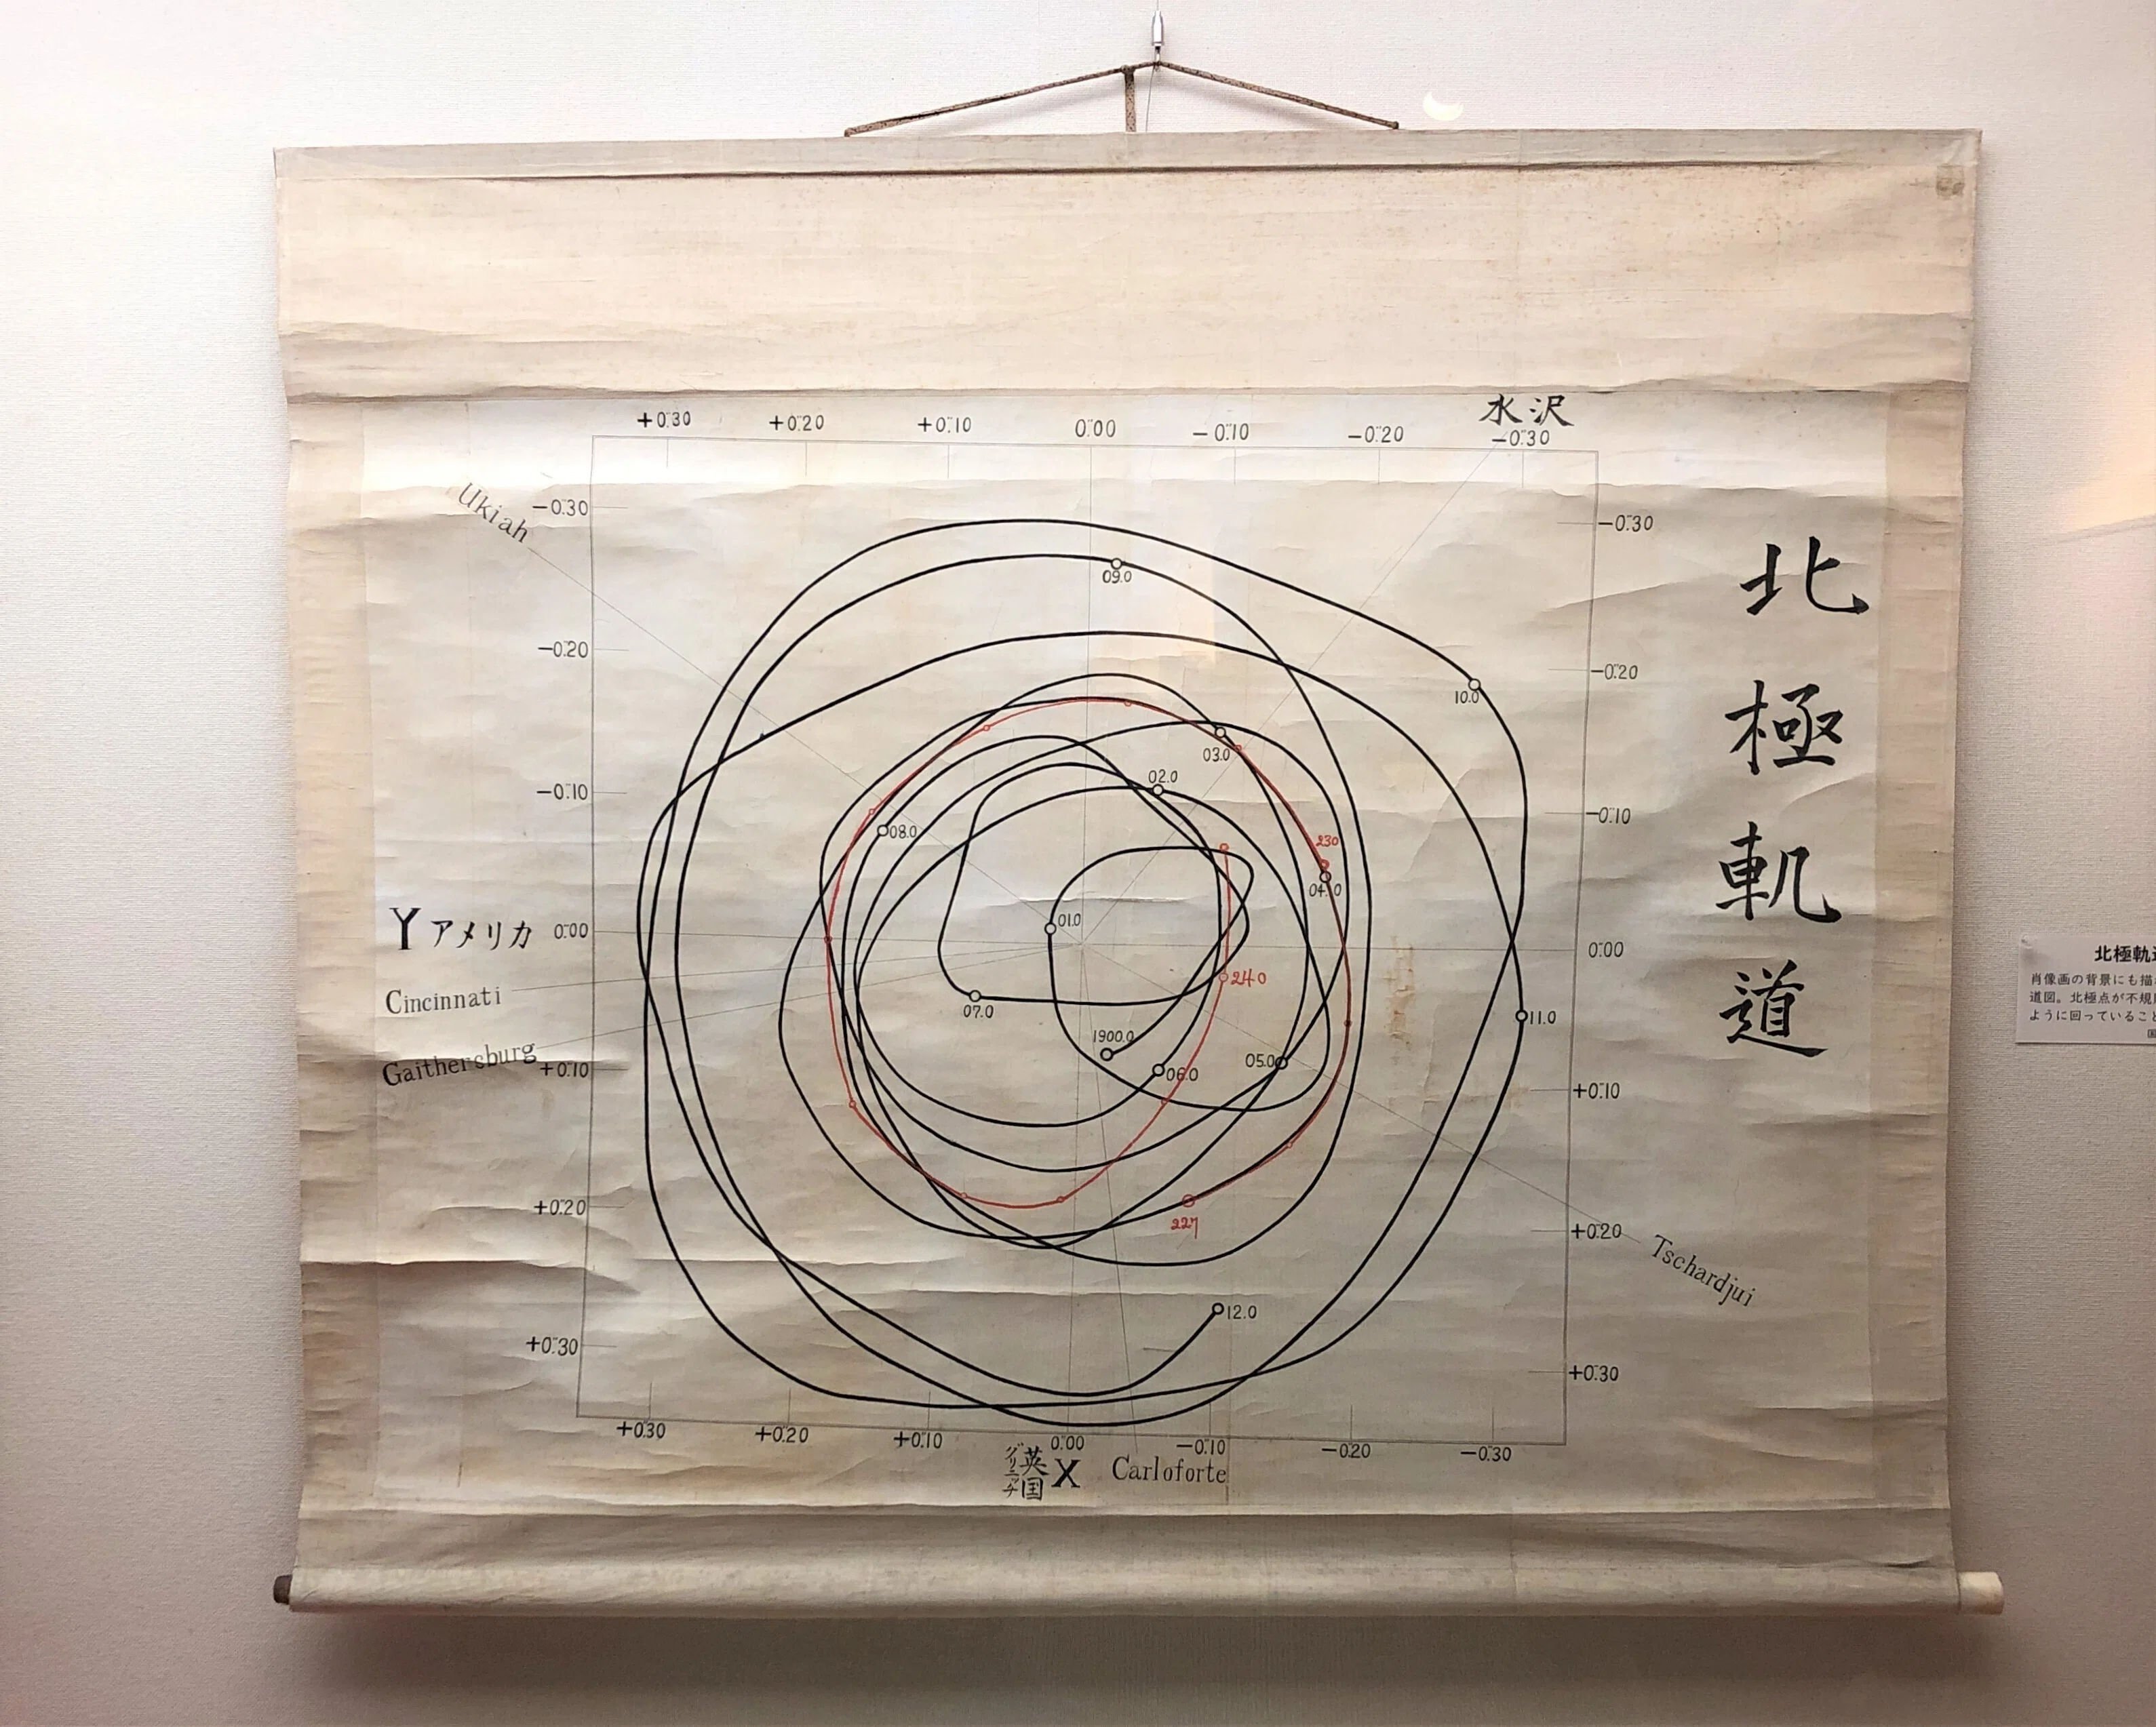 水沢
+0."30 +0."20 +0."10 0."00 −0."10 −0."20 −0."30
Ukiah
−0."30
−0."20
−0."10
Yアメリカ 0."00
Cincinnati
Gaithersburg
+0."10
+0."20
+0."30
−0."30
−0."20
−0."10
0."00
+0."10
+0."20
+0."30
Tschardjui
09.0
10.0
03.0
02.0
08.0
230
04.0
01.0
240
07.0
11.0
1900.0
06.0
05.0
227
12.0
+0."30 +0."20 +0."10 0."00 −0."10 −0."20 −0."30
英国
グリニッチ
X Carloforte
北極軌道
北極軌道
肖像画の背景にも描
道図。北極点が不規
ように回っていること